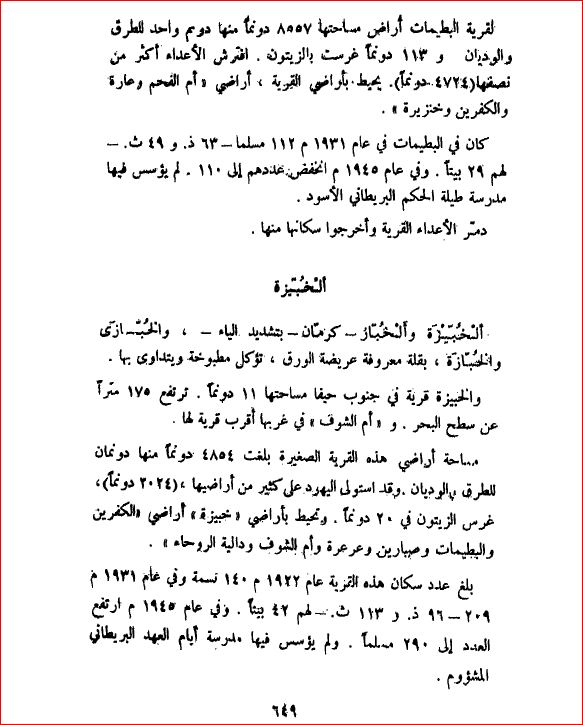 لقرية البطيمات أراض مساحتها ٨٥٥٧ دونماً منها دونم واحد للطرق
والوديان و ١١٣ دونماً غرست بالزيتون . افترش الأعداء أكثر من
نصفها (٤٧٢٤ دونماً). يحيط بأراضي القرية ، أراضي « أم الفحم وعارة
والكفرين وخنزيرة » .
كان في البطيمات في عام ١٩٣١ م ١١٢ مسلما – ٦٣ ذ. و ٤٩ ث. –
لهم ٢٩ بيتاً . وفي عام ١٩٤٥ م انخفض عددهم إلى ١١٠ . لم يؤسس فيها
مدرسة طيلة الحكم البريطاني الأسود .
دمّر الأعداء القرية وأخرجوا سكانها منها .
ألْخُبَّيْزة
ألْخُبَّيْزَة وألْخُبَّاز – كرمّان – بتشديد الياء – ، والخُبَّـازَى
والخُبَّازة ، بقلة معروفة عريضة الورق ، تؤكل مطبوخة ويتداوى بها .
والخبيزة قرية في جنوب حيفا مساحتها ١١ دونماً . ترتفع ١٧٥ متراً
عن سطح البحر . و « أم الشوف » في غربها أقرب قرية لها .
مساحة أراضي هذه القرية الصغيرة بلغت ٤٨٥٤ دونماً منها دونمان
للطرق والوديان . وقد استولى اليهود على كثير من أراضيها ، (٢٠٢٤ دونماً)،
غرس الزيتون في ٢٠ دونماً . وتحيط بأراضي « خبيزة » أراضي « الكفرين
والبطيمات وصبارين وعرعرة وأم الشوف ودالية الروحاء » .
بلغ عدد سكان هذه القرية عام ١٩٢٢ م ١٤٠ نسمة وفي عام ١٩٣١ م
٢٠٩ – ٩٦ ذ. و ١١٣ ث. – لهم ٤٢ بيتاً . وفي عام ١٩٤٥ م ارتفع
العدد إلى ٢٩٠ مسلماً . ولم يؤسس فيها مدرسة أيام العهد البريطاني
المشؤوم .
٦٤٩